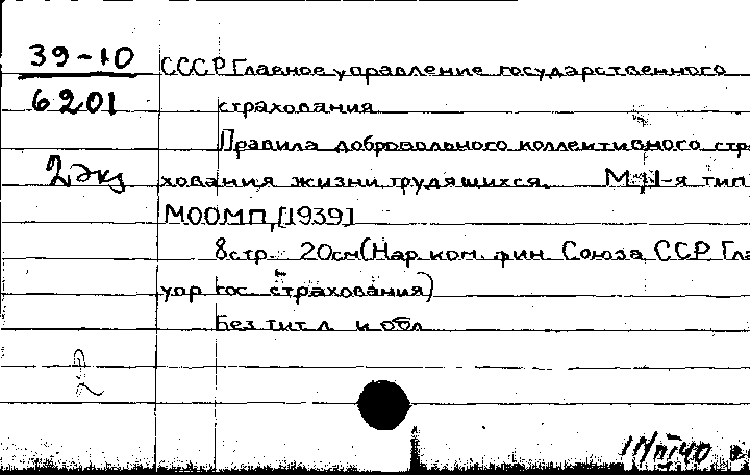 39-10
6201
2 экз
СССР. Главное управление государственного
страхования
Правила добровольного коллективного стра
хования жизни трудящихся. М. 1-я тип
МООМП, [1939]
8 стр. 20 см (Нар. ком. фин. Союза ССР. Гла
упр. гос. страхования)
Без тит. л. и обл.
2